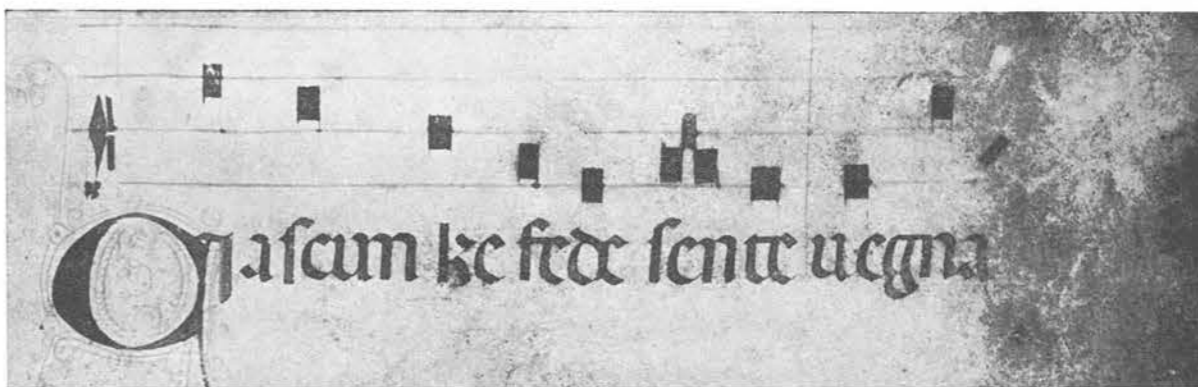 Ciascun ke fede sente uegna